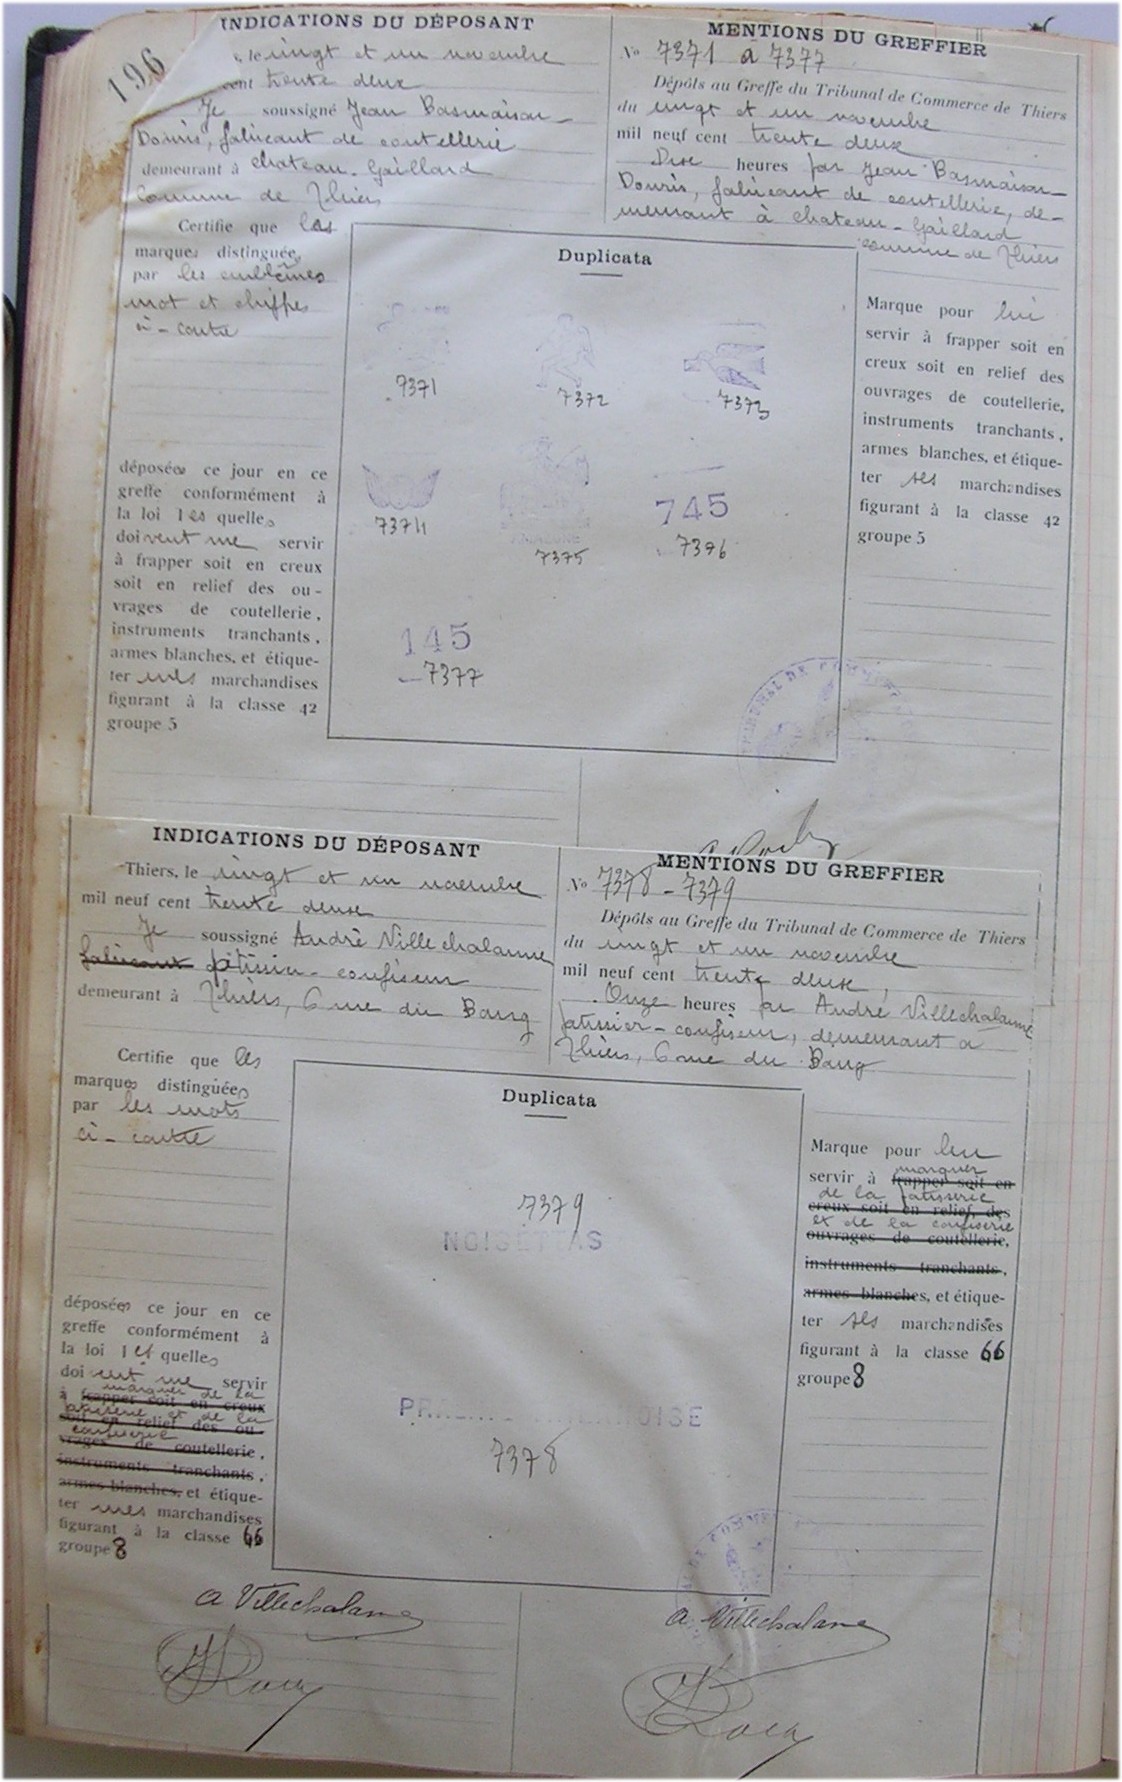 196
INDICATIONS DU DÉPOSANT
, le vingt et un novembre
cent trente deux
Je soussigné Jean Basmaison-
Douris, fabricant de coutellerie
demeurant à chateau-Gaillard
Commune de Thiers
Certifie que les
marques distinguées
par les emblêmes
mot et chiffres
ci-contre
déposées ce jour en ce
greffe conformément à
la loi lesquelles
doivent me servir
à frapper soit en creux
soit en relief des ou-
vrages de coutellerie,
instruments tranchants,
armes blanches, et étique-
ter mes marchandises
figurant à la classe 42
groupe 5
MENTIONS DU GREFFIER
No 7371 à 7377
Dépôts au Greffe du Tribunal de Commerce de Thiers
du vingt et un novembre
mil neuf cent trente deux
Dix heures par Jean Basmaison-
Douris, fabricant de coutellerie, de-
meurant à chateau-Gaillard
commune de Thiers
Duplicata
7371
7372
7373
7374
7375
745
7376
145
7377
Marque pour lui
servir à frapper soit en
creux soit en relief des
ouvrages de coutellerie,
instruments tranchants,
armes blanches, et étique-
ter ses marchandises
figurant à la classe 42
groupe 5
TRIBUNAL DE COMMERCE
INDICATIONS DU DÉPOSANT
Thiers, le vingt et un novembre
mil neuf cent trente deux
Je soussigné André Villechalanne
fabricant pâtissier-confiseur
demeurant à Thiers, 6 rue du Bourg
Certifie que les
marques distinguées
par les mots
ci-contre
déposées ce jour en ce
greffe conformément à
la loi lesquelles
doivent me servir
marquer de la
à frapper soit en creux
patisserie et de la
soit en relief des ou-
confiserie
vrages de coutellerie,
instruments tranchants,
armes blanches, et étique-
ter mes marchandises
figurant à la classe 66
groupe 8
MENTIONS DU GREFFIER
No 7378-7379
Dépôts au Greffe du Tribunal de Commerce de Thiers
du vingt et un novembre
mil neuf cent trente deux,
Onze heures par André Villechalanne
patissier-confiseur, demeurant à
Thiers, 6 rue du Bourg
Duplicata
7379
NOISETTAS
7378
Marque pour lui
marquer
servir à frapper soit en
de la patisserie
creux soit en relief, des
et de la confiserie
ouvrages de coutellerie,
instruments tranchants,
armes blanches, et étique-
ter ses marchandises
figurant à la classe 66
groupe 8
DE COMMERCE
A Villechalane
A. Villechalane